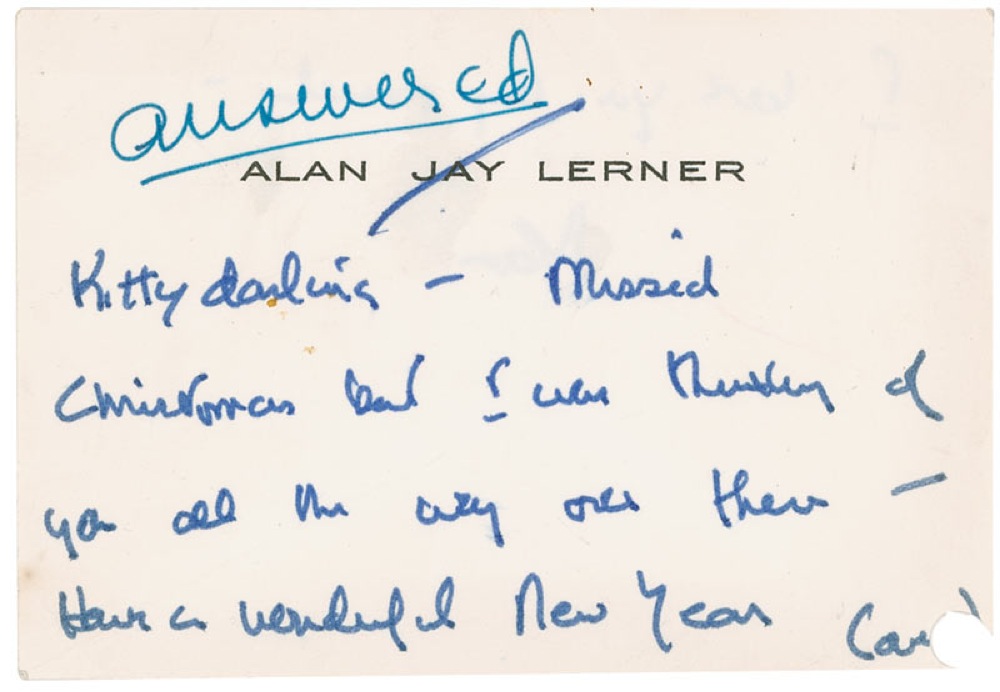 answered
ALAN JAY LERNER
Kitty darling – Missed
Christmas but I was thinking of
you all the way over there –
Have a wonderful New Year